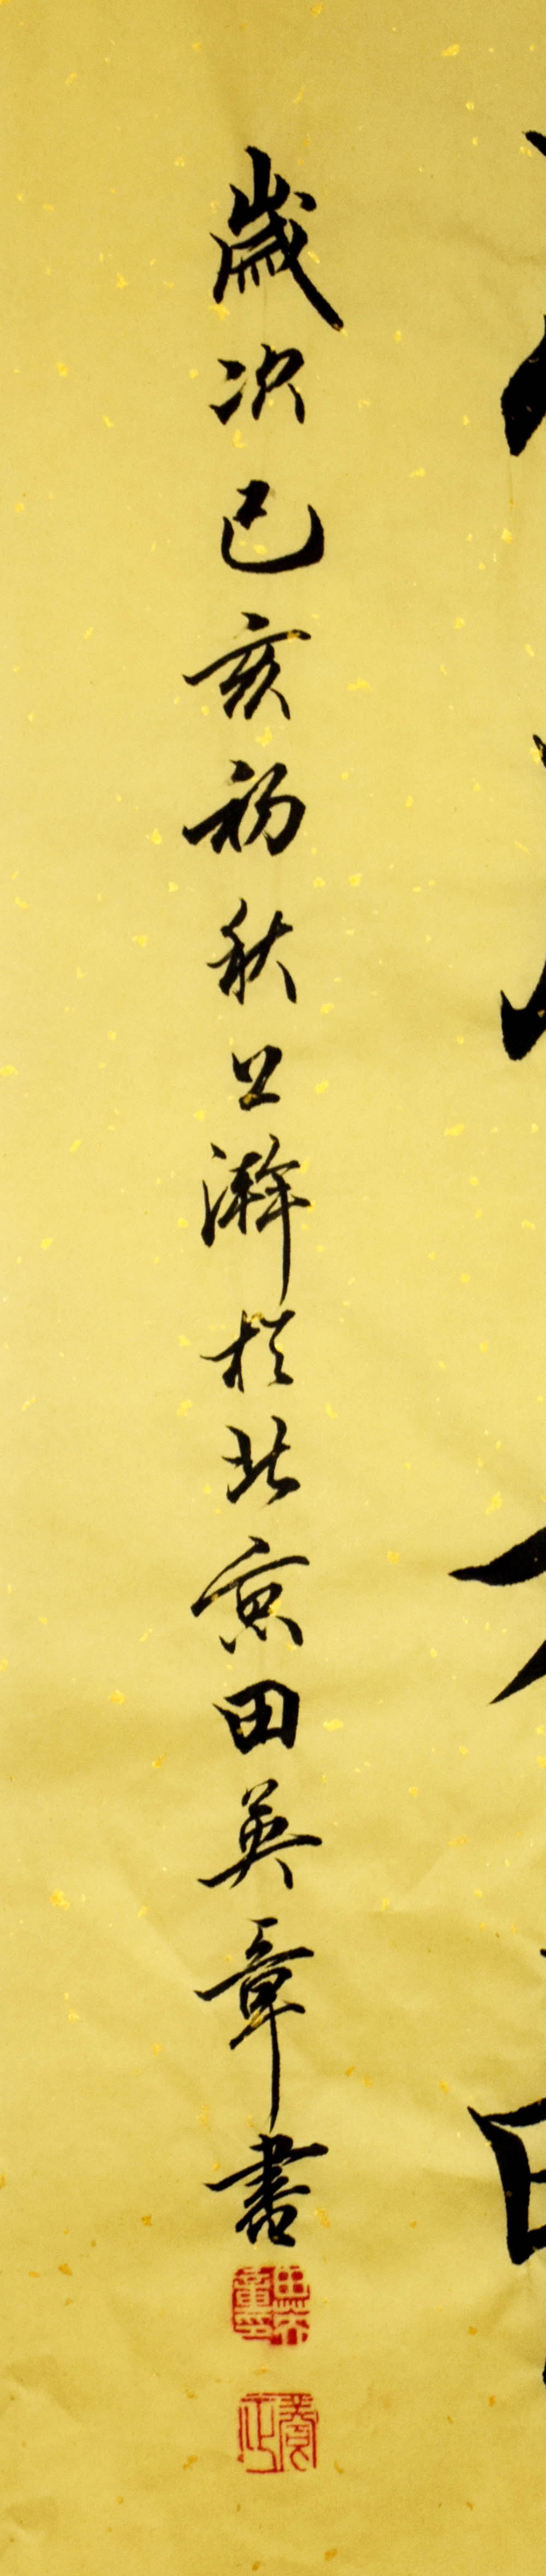 歲次己亥初秋上澣於北京田英章書